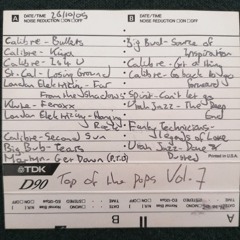 A DATE/TIME 26/10/05
NOISE REDUCTION ON OFF
B DATE/TIME
NOISE REDUCTION ON OFF
Calibre - Bullets
Calibre -
Calibre - Is 4 U
St. Cal - Losing Ground
London Elektricity - Far
From The
Kluke - Feroxx
London Elektricity - Hanging
Rock
Calibre - Second Sun
Big Bud - Tears
Martyn - Get Down (P.T.2)
Big Bud - Source of
Inspiration
Calibre - Got a thing
Calibre - Go back to go
forward
Spirit - Can't let go
Utah Jazz - The Deep
End
Funky Technicians -
of Love
Utah Jazz - Done &
Dusted
Printed in U.S.A.
TDK
D90 Top of the pops Vol. 7
A
B